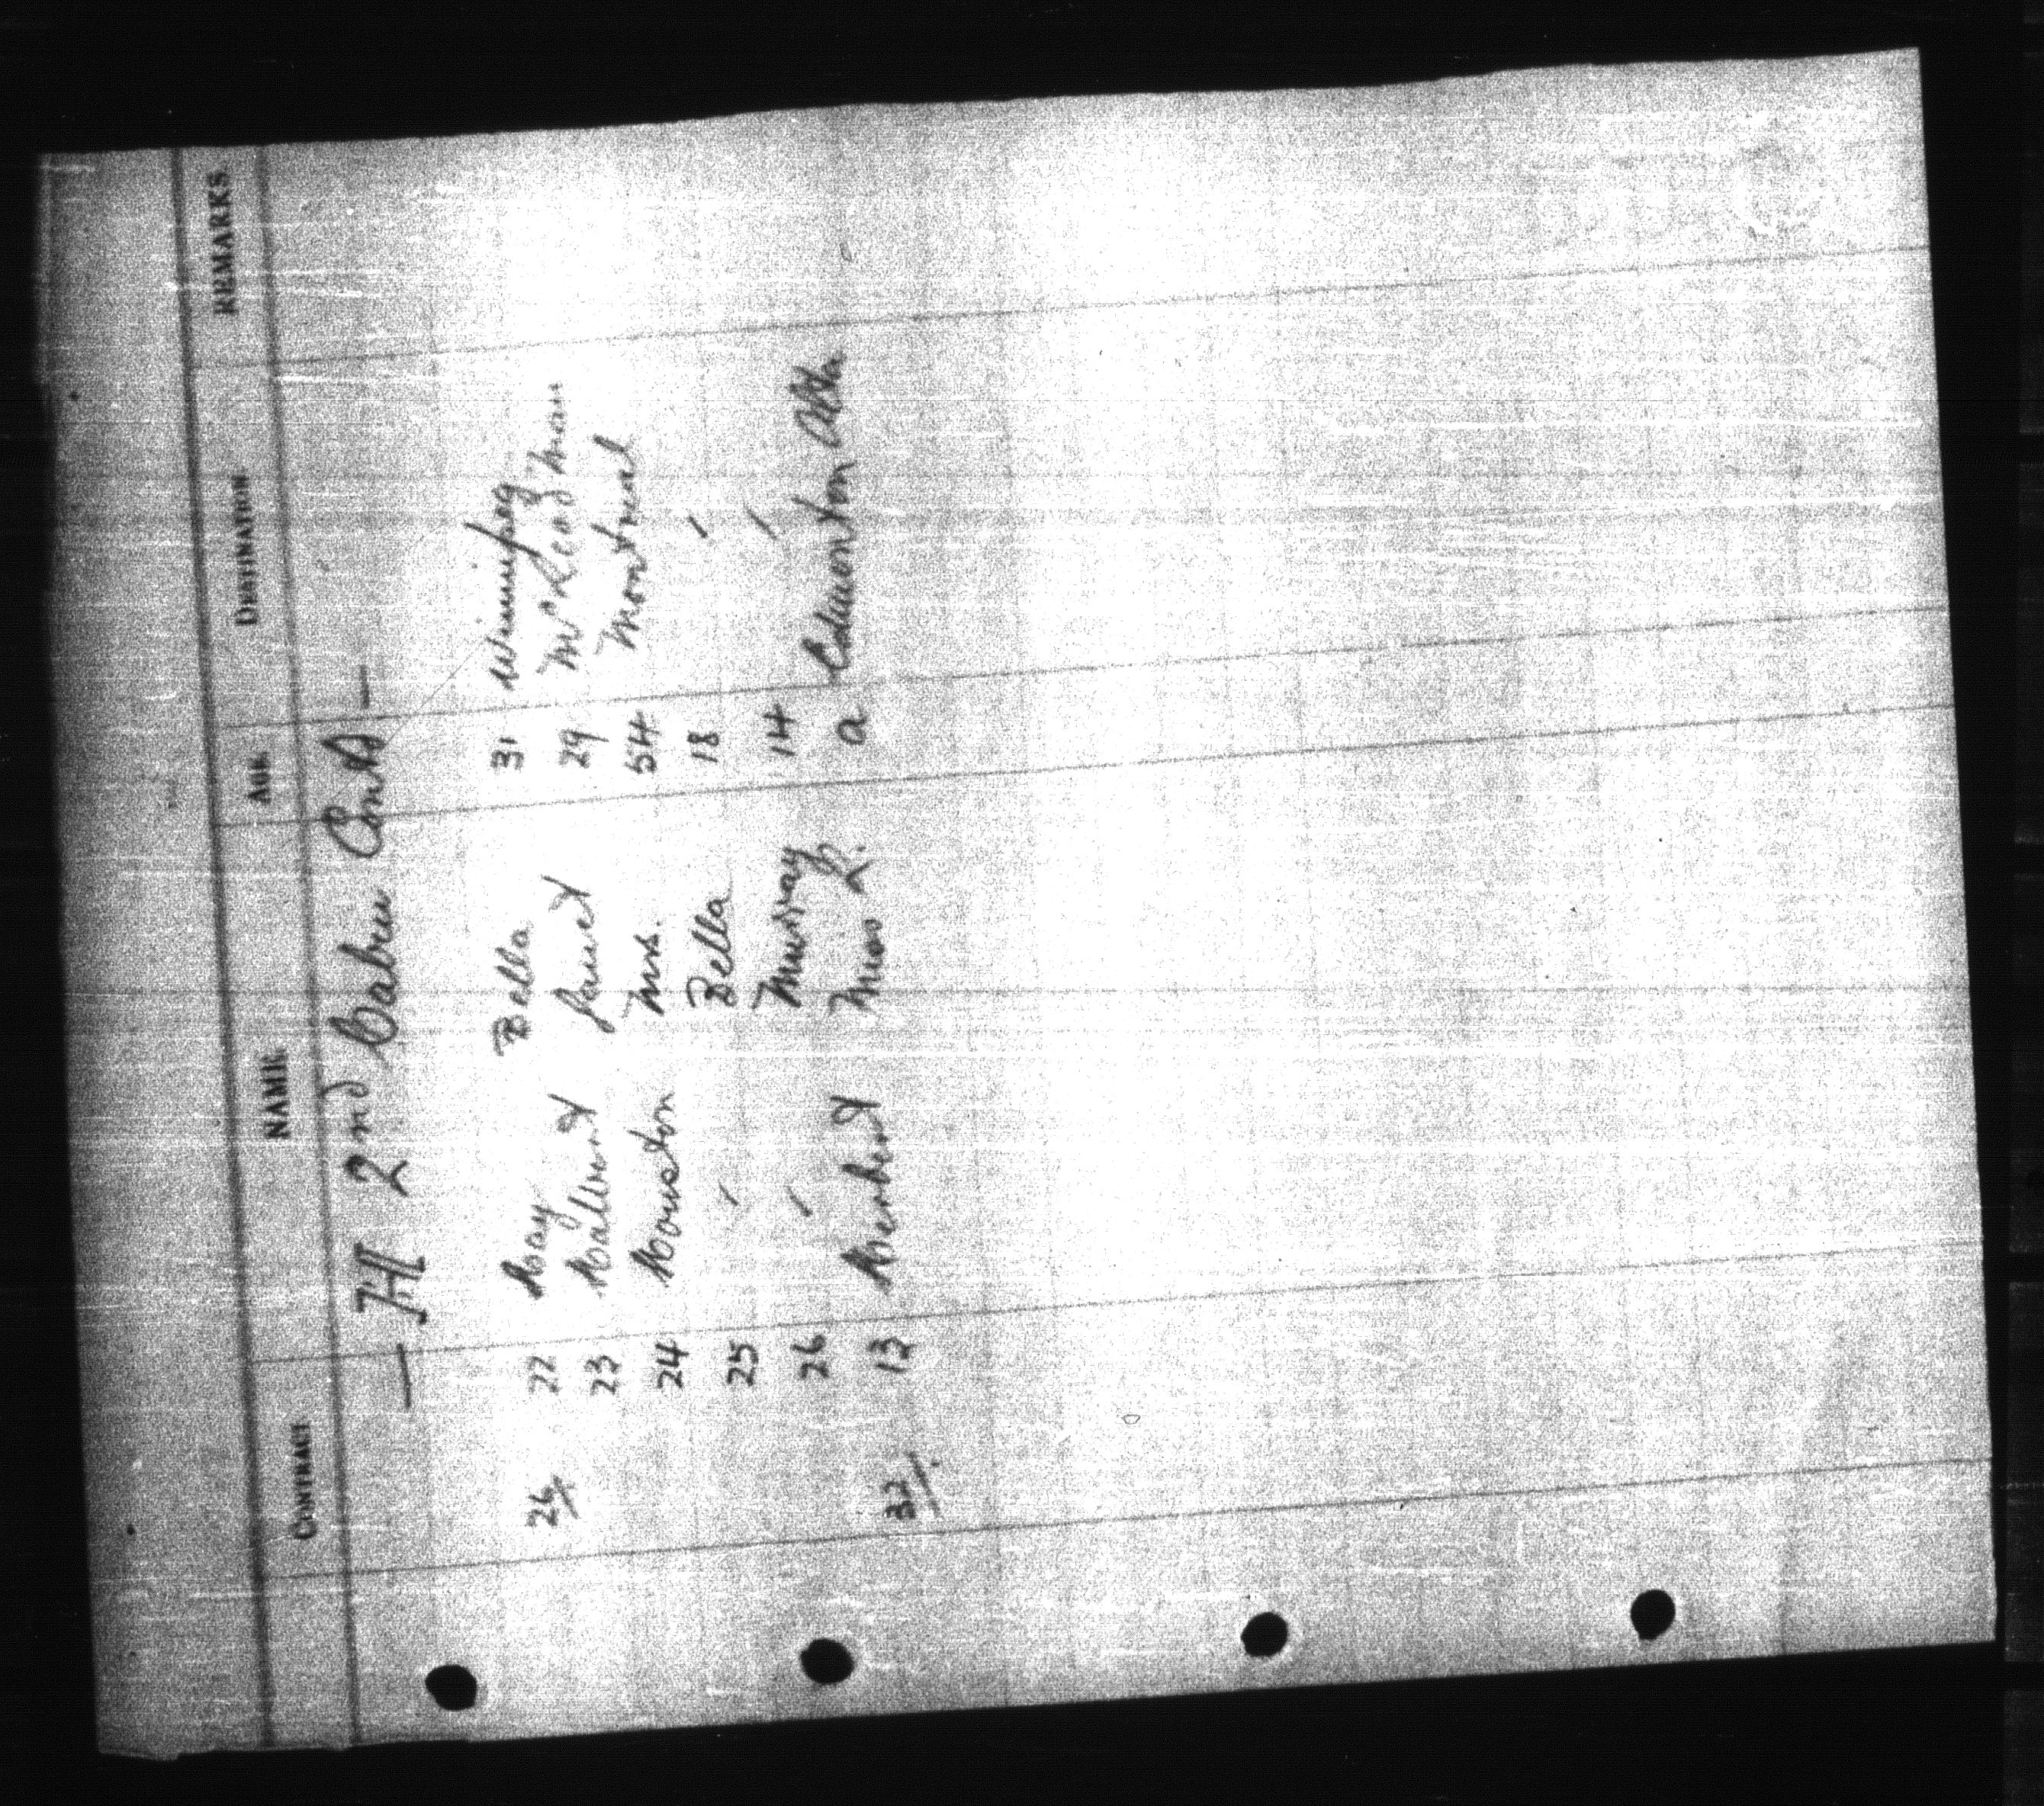 CONTRACT NAME AGE DESTINATION REMARKS
— H 2nd Cabin Contd —
26/ 22 Hay Bella 31 Winnipeg
23 Hallworth Janet 29 McLeod Man
24 Houston Mrs. 54 Montreal
25 " Bella 18 "
26 " Murray 14 "
32/. 13 Herbert Miss R. a Edmonton Alta